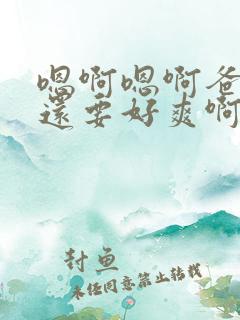 嗯啊嗯啊爸
還要好爽啊
封鱼
未经同意禁止转载